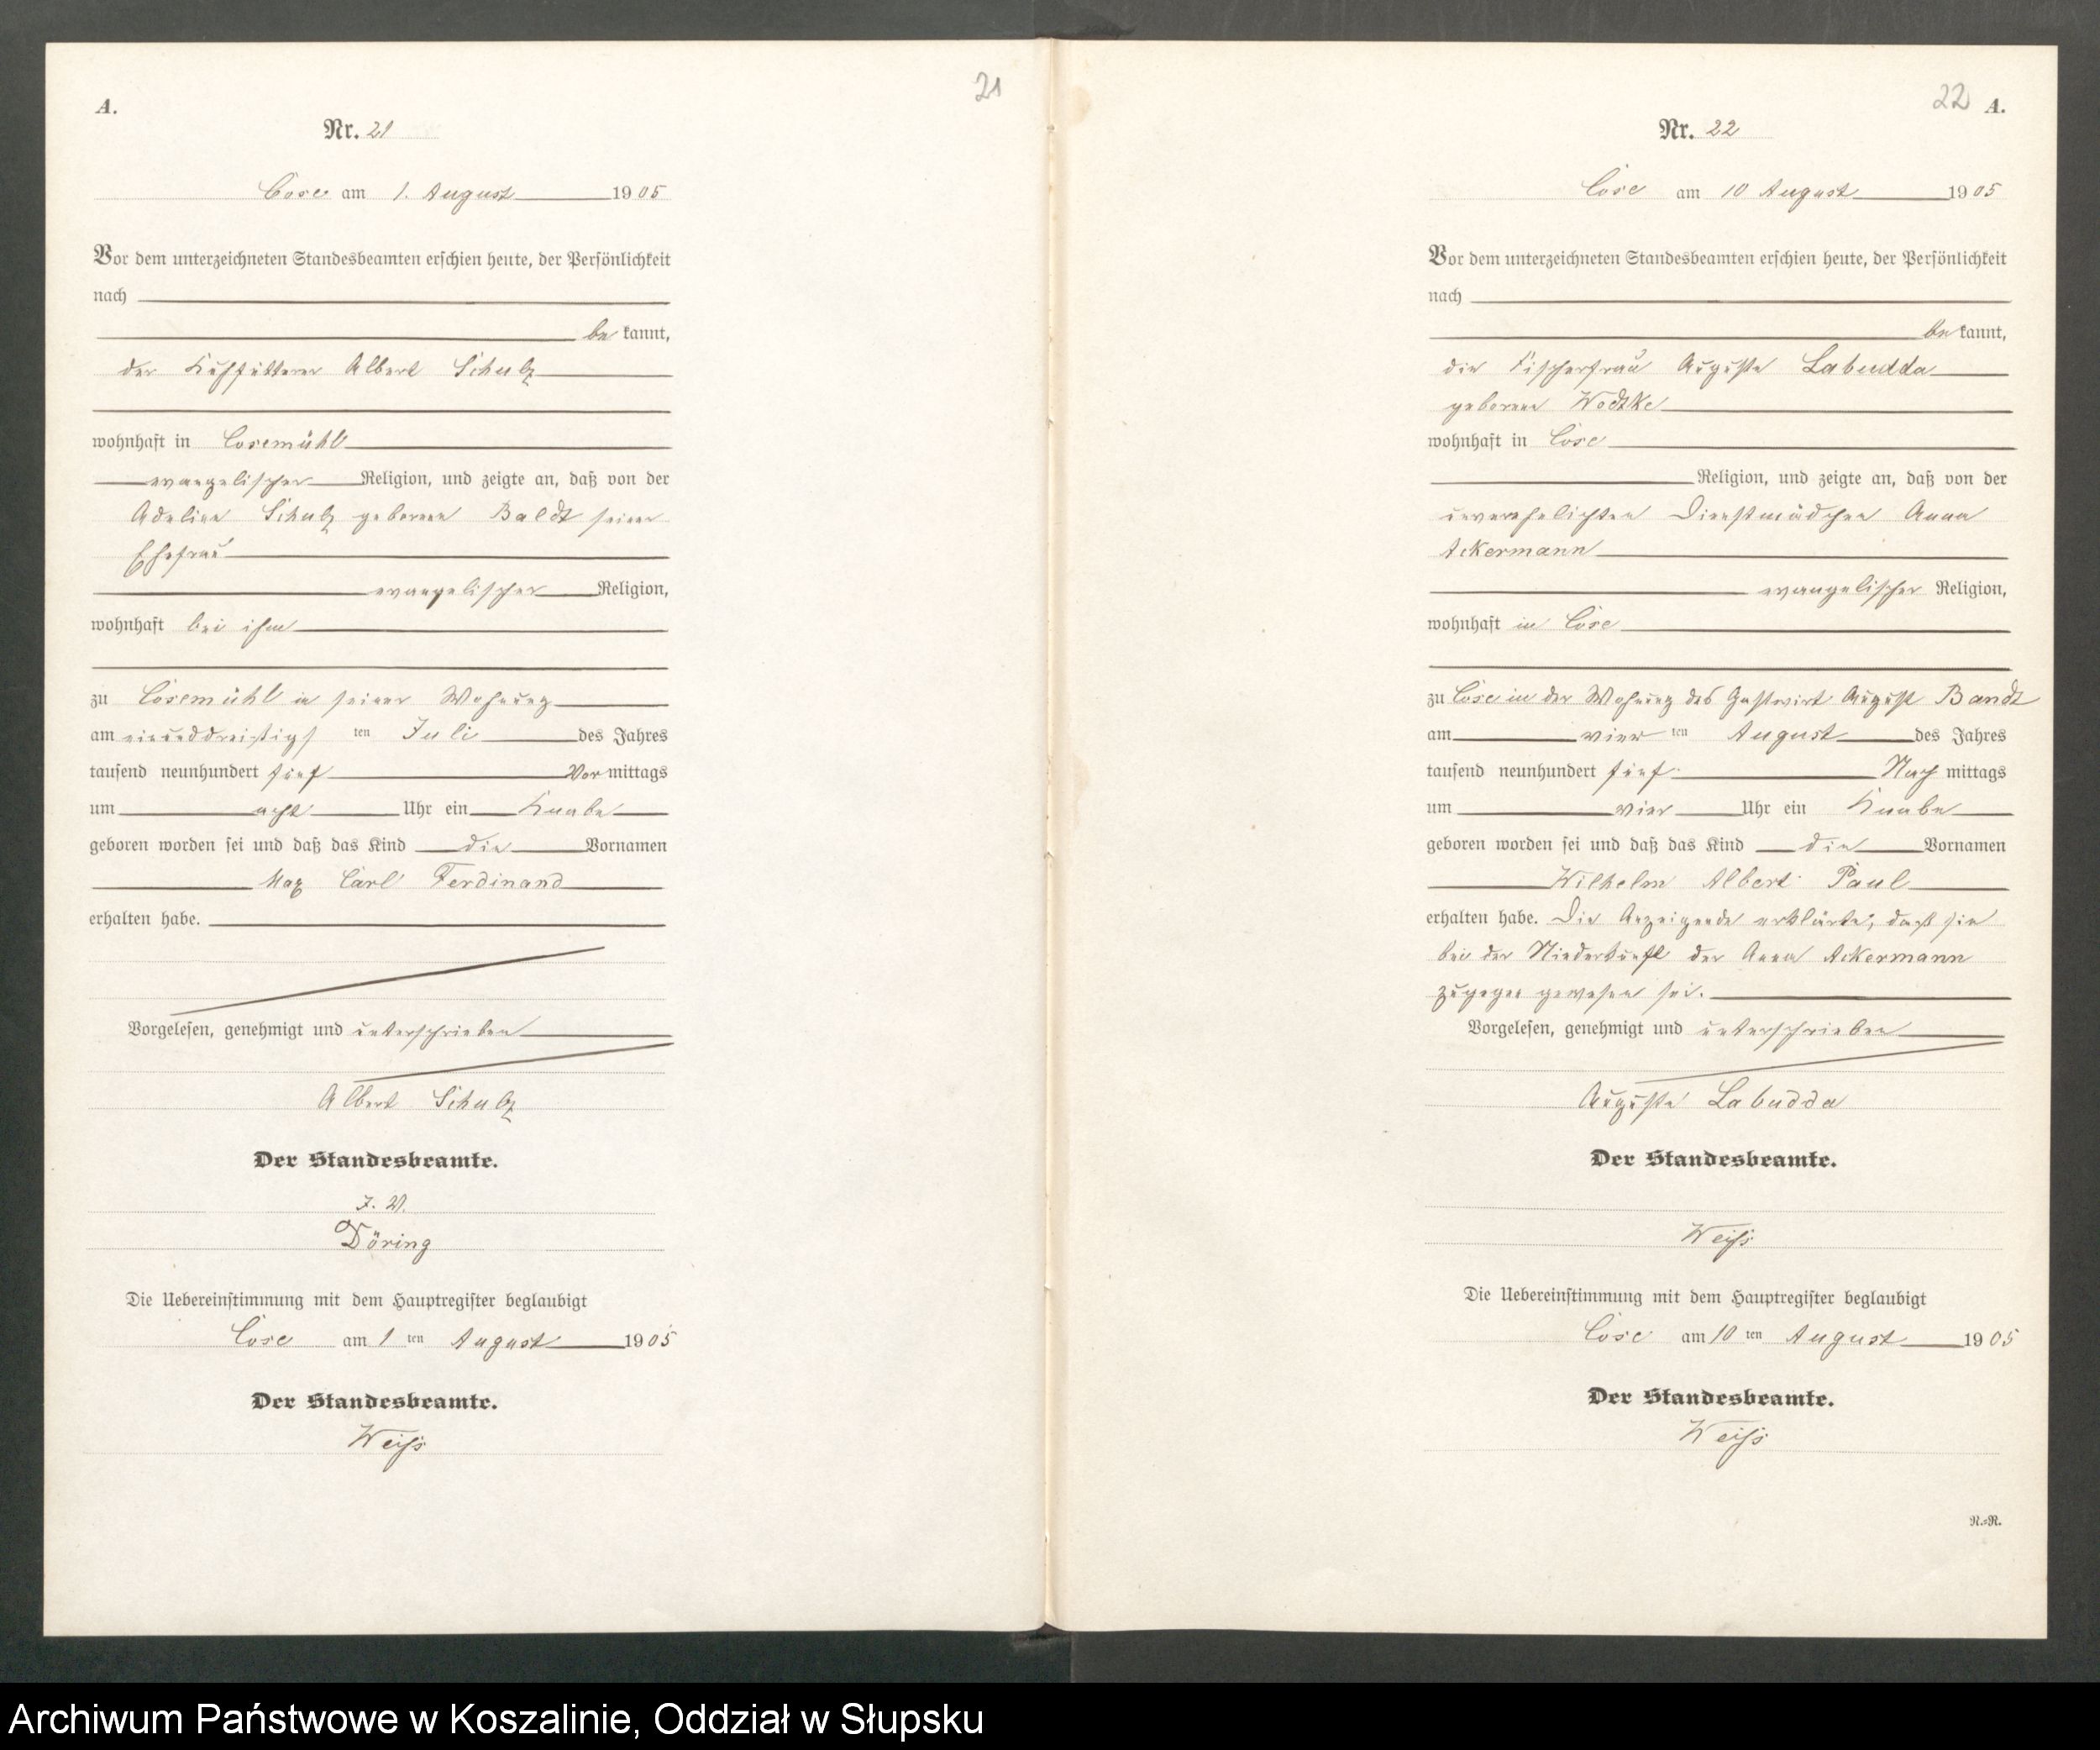 21
A.
Nr. 21
Cose am 1. August 1905
Vor dem unterzeichneten Standesbeamten erschien heute, der Persönlichkeit
nach
be kannt,
der Kuhfütterer Albert Schulz
wohnhaft in Cosemühl
evangelischer Religion, und zeigte an, daß von der
Adeline Schulz geborenen Baldt seiner
Ehefrau
evangelischer Religion,
wohnhaft bei ihm
zu Cosemühl in seiner Wohnung
am einunddreißigs ten Juli des Jahres
tausend neunhundert fünf Vor mittags
um acht Uhr ein Knabe
geboren worden sei und daß das Kind die Vornamen
Max Carl Ferdinand
erhalten habe.
Vorgelesen, genehmigt und unterschrieben
Albert Schulz
Der Standesbeamte.
I. V.
Döring
Die Uebereinstimmung mit dem Hauptregister beglaubigt
Cose am 1 ten August 1905
Der Standesbeamte.
Weiß
22 A.
Nr. 22
Cose am 10 August 1905
Vor dem unterzeichneten Standesbeamten erschien heute, der Persönlichkeit
nach
be kannt,
die Fischerfrau Auguste Labudda
geborene Wodtke
wohnhaft in Cose
Religion, und zeigte an, daß von der
unverehelichten Dienstmädchen Anna
Ackermann
evangelischer Religion,
wohnhaft in Cose
zu Cose in der Wohnung des Gastwirt August Bandt
am vier ten August des Jahres
tausend neunhundert fünf Nach mittags
um vier Uhr ein Knabe
geboren worden sei und daß das Kind die Vornamen
Wilhelm Albert Paul
erhalten habe. Die Anzeigende erklärte, daß sie
bei der Niederkunft der Anna Ackermann
zugegen gewesen sei.
Vorgelesen, genehmigt und unterschrieben
Auguste Labudda
Der Standesbeamte.
Weiß
Die Uebereinstimmung mit dem Hauptregister beglaubigt
Cose am 10 ten August 1905
Der Standesbeamte.
Weiß
N.=R.
Archiwum Państwowe w Koszalinie, Oddział w Słupsku